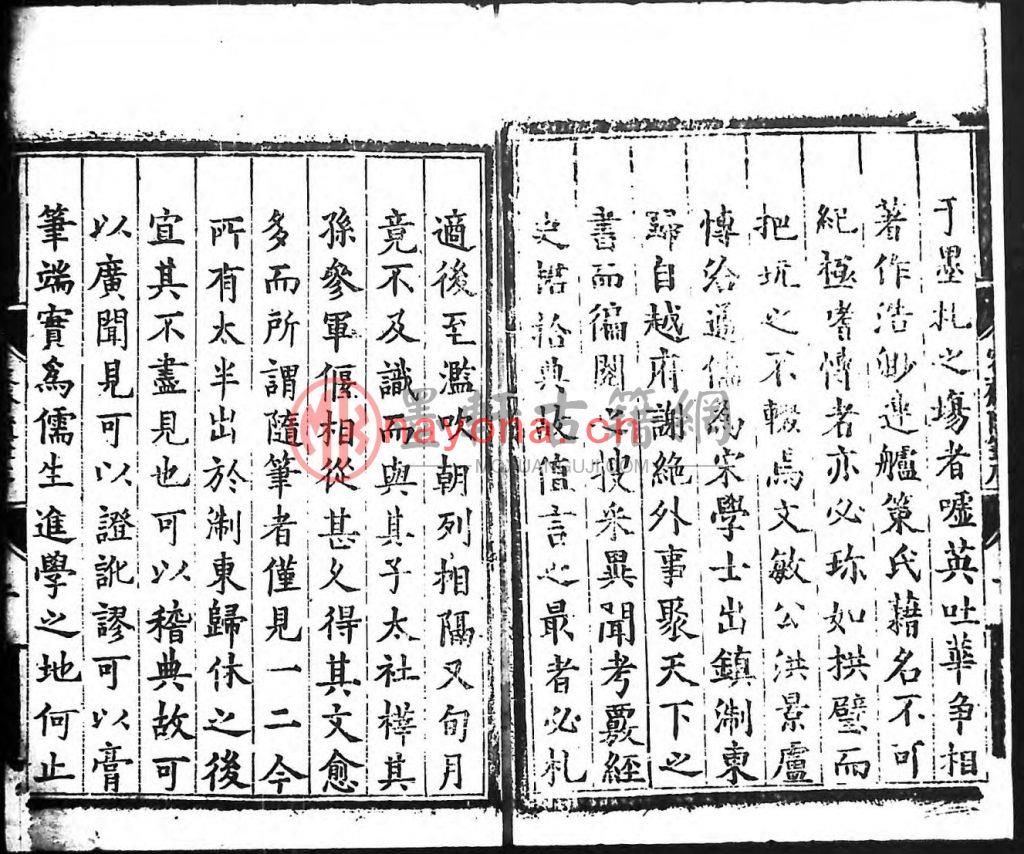 于墨札之場者噓英吐華争相
著作浩眇連艫策氏藉名不可
紀極嗜愽者亦必珎如拱璧而
把玩之不輟焉文敏公洪景盧
愽洽通儒為宋學士出鎮淛東
歸自越府謝絶外事聚天下之
書而徧閱之搜采異聞考覈經
史捃拾典故值言之最者必札
適後至濫吹朝列相隔又旬月
竟不及識而與其子太社㯽其
孫參軍偃相從甚乆得其文愈
多而所謂隨筆者僅見一二今
所有太半出於淛東歸休之後
宜其不盡見也可以稽典故可
以廣聞見可以證訛謬可以膏
筆端實為儒生進學之地何止
墨軒古籍網
nayona.cn
MOXUANGUJI.COM